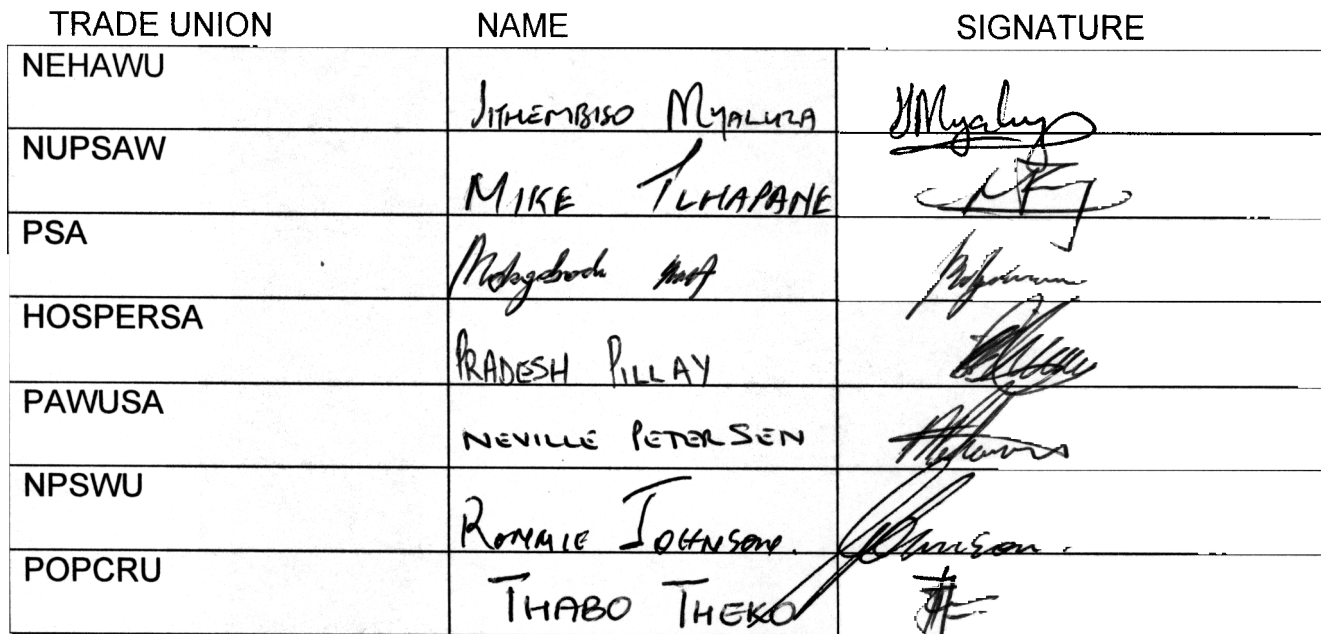 TRADE UNION NAME SIGNATURE
NEHAWU
JITHEMBISO MYALUZA
NUPSAW
MIKE TLHAPANE
PSA
HOSPERSA
PRADESH PILLAY
PAWUSA
NEVILLE PETERSEN
NPSWU
RONNIE JOHNSON. Johnson.
POPCRU
THABO THEKO